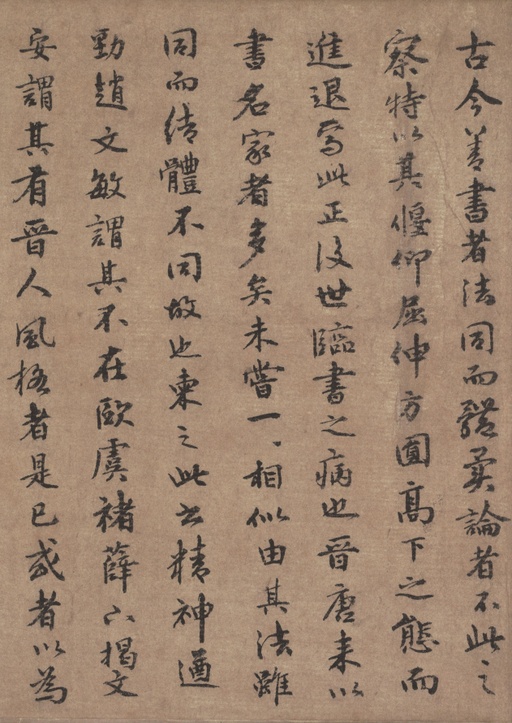 古今善書者法同而體異論者不此之
察特以其偃仰屈伸方圓高下之態而
進退焉此正後世臨書之病也晉唐來以
書名家者多矣未嘗一一相似由其法雖
同而結體不同故也東之此書精神遒
勁趙文敏謂其不在歐虞褚薛下揭文
安謂其有晉人風格者是已或者以為